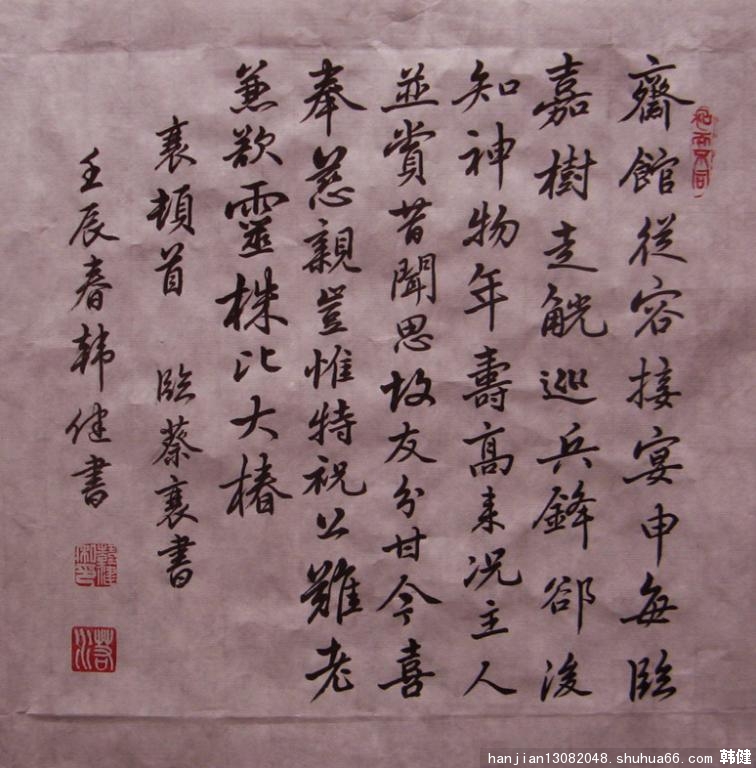 齋館從容接宴申每臨
嘉樹走觥巡兵鋒郤後
知神物年壽高来況主人
並賞昔聞思故友分甘今喜
奉慈親豈惟特祝公難老
兼欲靈株比大椿
襄頓首 臨蔡襄書
壬辰春韩健書
hanjian13082048.shuhua66.com 韩健